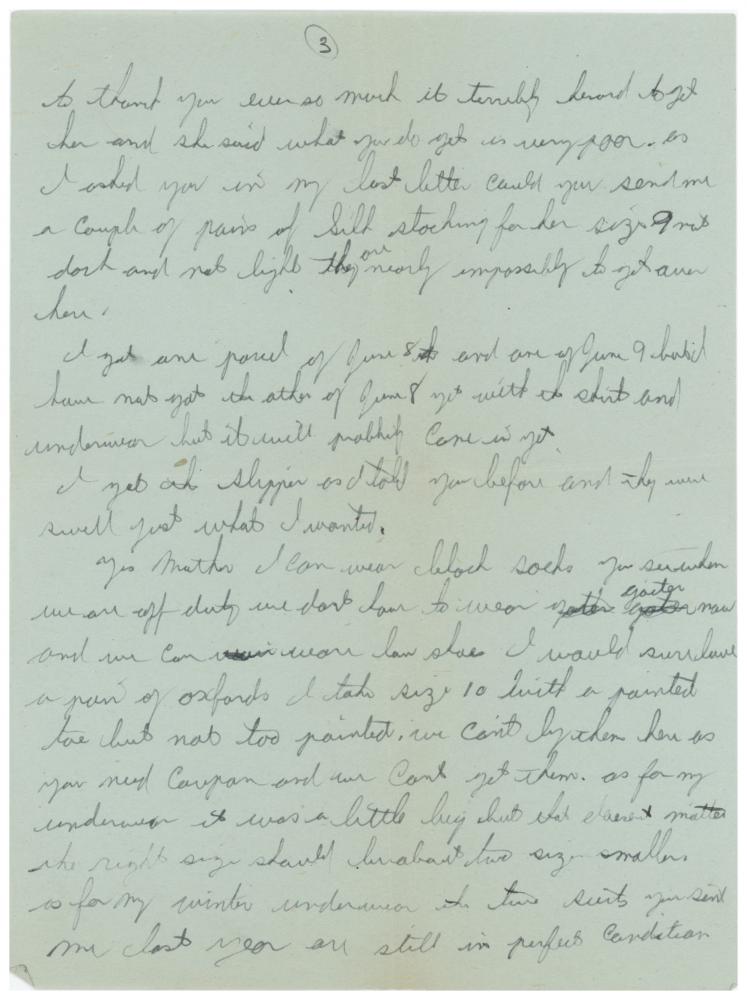 3
to thank you ever so much it terribly heard to get
her and she said what you do get is very poor. as
I asked you in my last letter could you send me
a couple of pairs of Silk stocking for her size 9 not
dark and not light they are nearly impossibly to get over
here.
I got one parcel of June 8th and one of June 9 but I
have not got the other of June 8 yet with the shirt and
underwear but it will probbily come in yet
I get the slipper as I told you before and they were
swell just what I wanted.
Yes Mother I can wear black socks you see when
we are off duty we dont have to wear gaiter now
and we can wear low shoes I would sure love
a pair of oxfords I take size 10 with a pointed
toe but not too pointed. we can't by them here as
you need coupon and we cant get them. as for my
underwear it was a little big but that doesent matter
the right size should be about two size smaller.
as for my winter underwear the two suits you sent
me last year are still in perfect condition